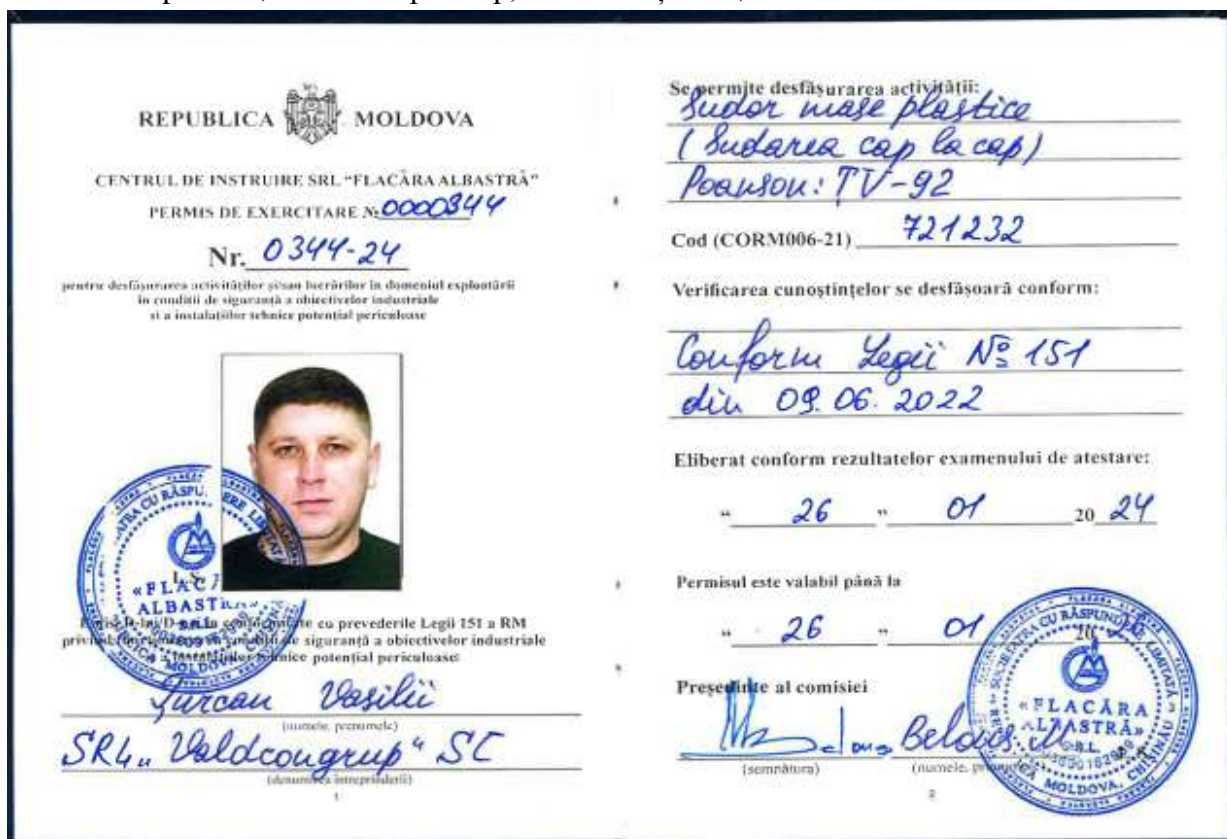 REPUBLICA MOLDOVA
CENTRUL DE INSTRUIRE SRL "FLACĂRA ALBASTRĂ"
PERMIS DE EXERCITARE № 0000344
Nr. 0344-24
pentru desfășurarea activităților și/sau lucrărilor în domeniul exploatării
în condiții de siguranță a obiectivelor industriale
și a instalațiilor tehnice potențial periculoase
L.S.
«FLACĂRA
ALBASTRĂ»
cu prevederile Legii 151 a RM
de siguranță a obiectivelor industriale
a instalațiilor tehnice potențial periculoase:
Țurcan Vasilii
(numele, prenumele)
SRL „Valdcongrup" SC
(denumirea întreprinderii)
1
Se permite desfășurarea activității:
Sudor mase plastice
(Sudarea cap la cap)
Poanson: TV-92
Cod (CORM006-21) 721232
Verificarea cunoștințelor se desfășoară conform:
Conform Legii № 151
din 09.06.2022
Eliberat conform rezultatelor examenului de atestare:
" 26 " 01 20 24
Permisul este valabil până la
" 26 " 01 20
Președinte al comisiei
Belous M
(semnătura) (numele,
SOCIETATEA CU RĂSPUNDERE LIMITATĂ
«FLACĂRA
ALBASTRĂ»
S.R.L.
MOLDOVA, CHIȘINĂU
2